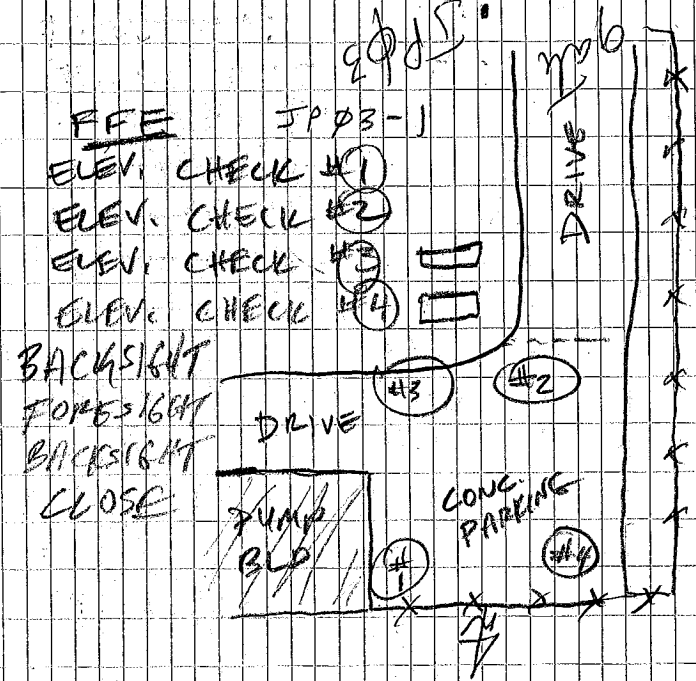 FFE JPØ3-1
ELEV. CHECK #1
ELEV. CHECK #2
ELEV. CHECK #3
ELEV. CHECK #4
BACKSIGHT
FORESIGHT
BACKSIGHT
CLOSE
DRIVE
#3
#2
DRIVE
CONC.
PARKING
PUMP
BLD
#1
#4